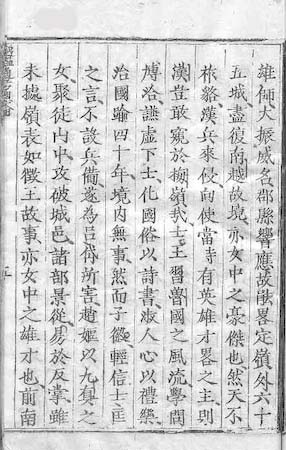 雄師大振威名郡縣響應故能畧定嶺外六十
五城盡復南越故境亦女中之豪傑也然天不
祚貉漢兵來侵向使當寺有英雄才畧之主則
漢豈敢窺於嶺哉士王習魯國之風流學問
博洽謙虛下士化國俗以詩書淑人心以禮樂
治國踰四十年境内無事然而子徽輕信士匡
之言不設兵備遂為呂岱所害趙嫗以九真之
女聚徒山中攻破城邑諸部景從易於反掌雖
未據嶺表如徵王故事亦女中之雄才也前南
五